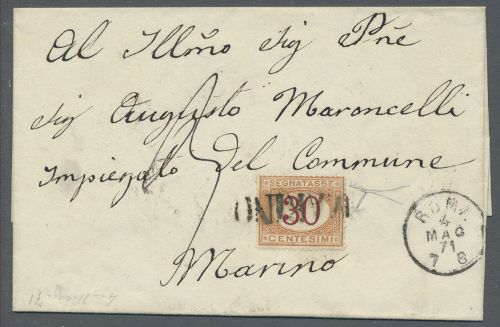 Al Illmo Sig Pñe
Sig Augusto Maroncelli
Impiegato del Commune
Marino
SEGNATASSE
30
CENTESIMI
MARINO
ROMA
4
MAG
71
7 S